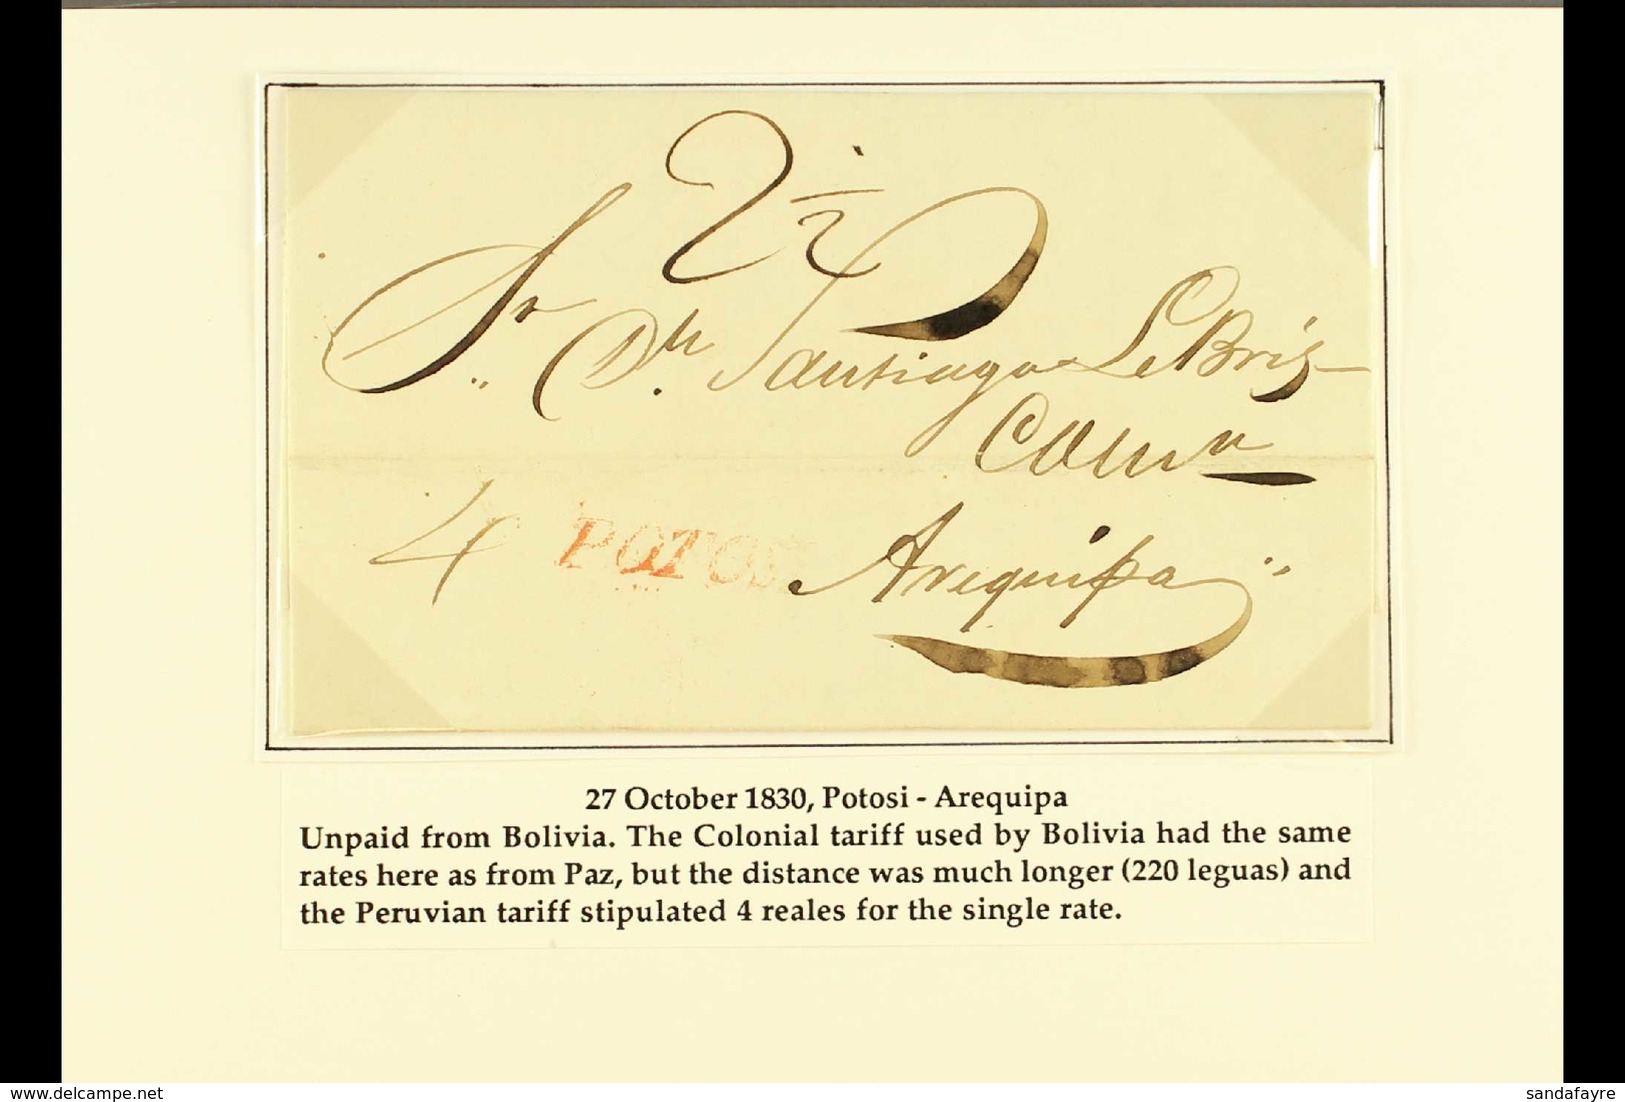 2 1/2
Sr Dn Santiago LeBris
Arequipa
4 POTOSI
27 October 1830, Potosi - Arequipa
Unpaid from Bolivia. The Colonial tariff used by Bolivia had the same
rates here as from Paz, but the distance was much longer (220 leguas) and
the Peruvian tariff stipulated 4 reales for the single rate.
www.delcampe.net
sandafayre